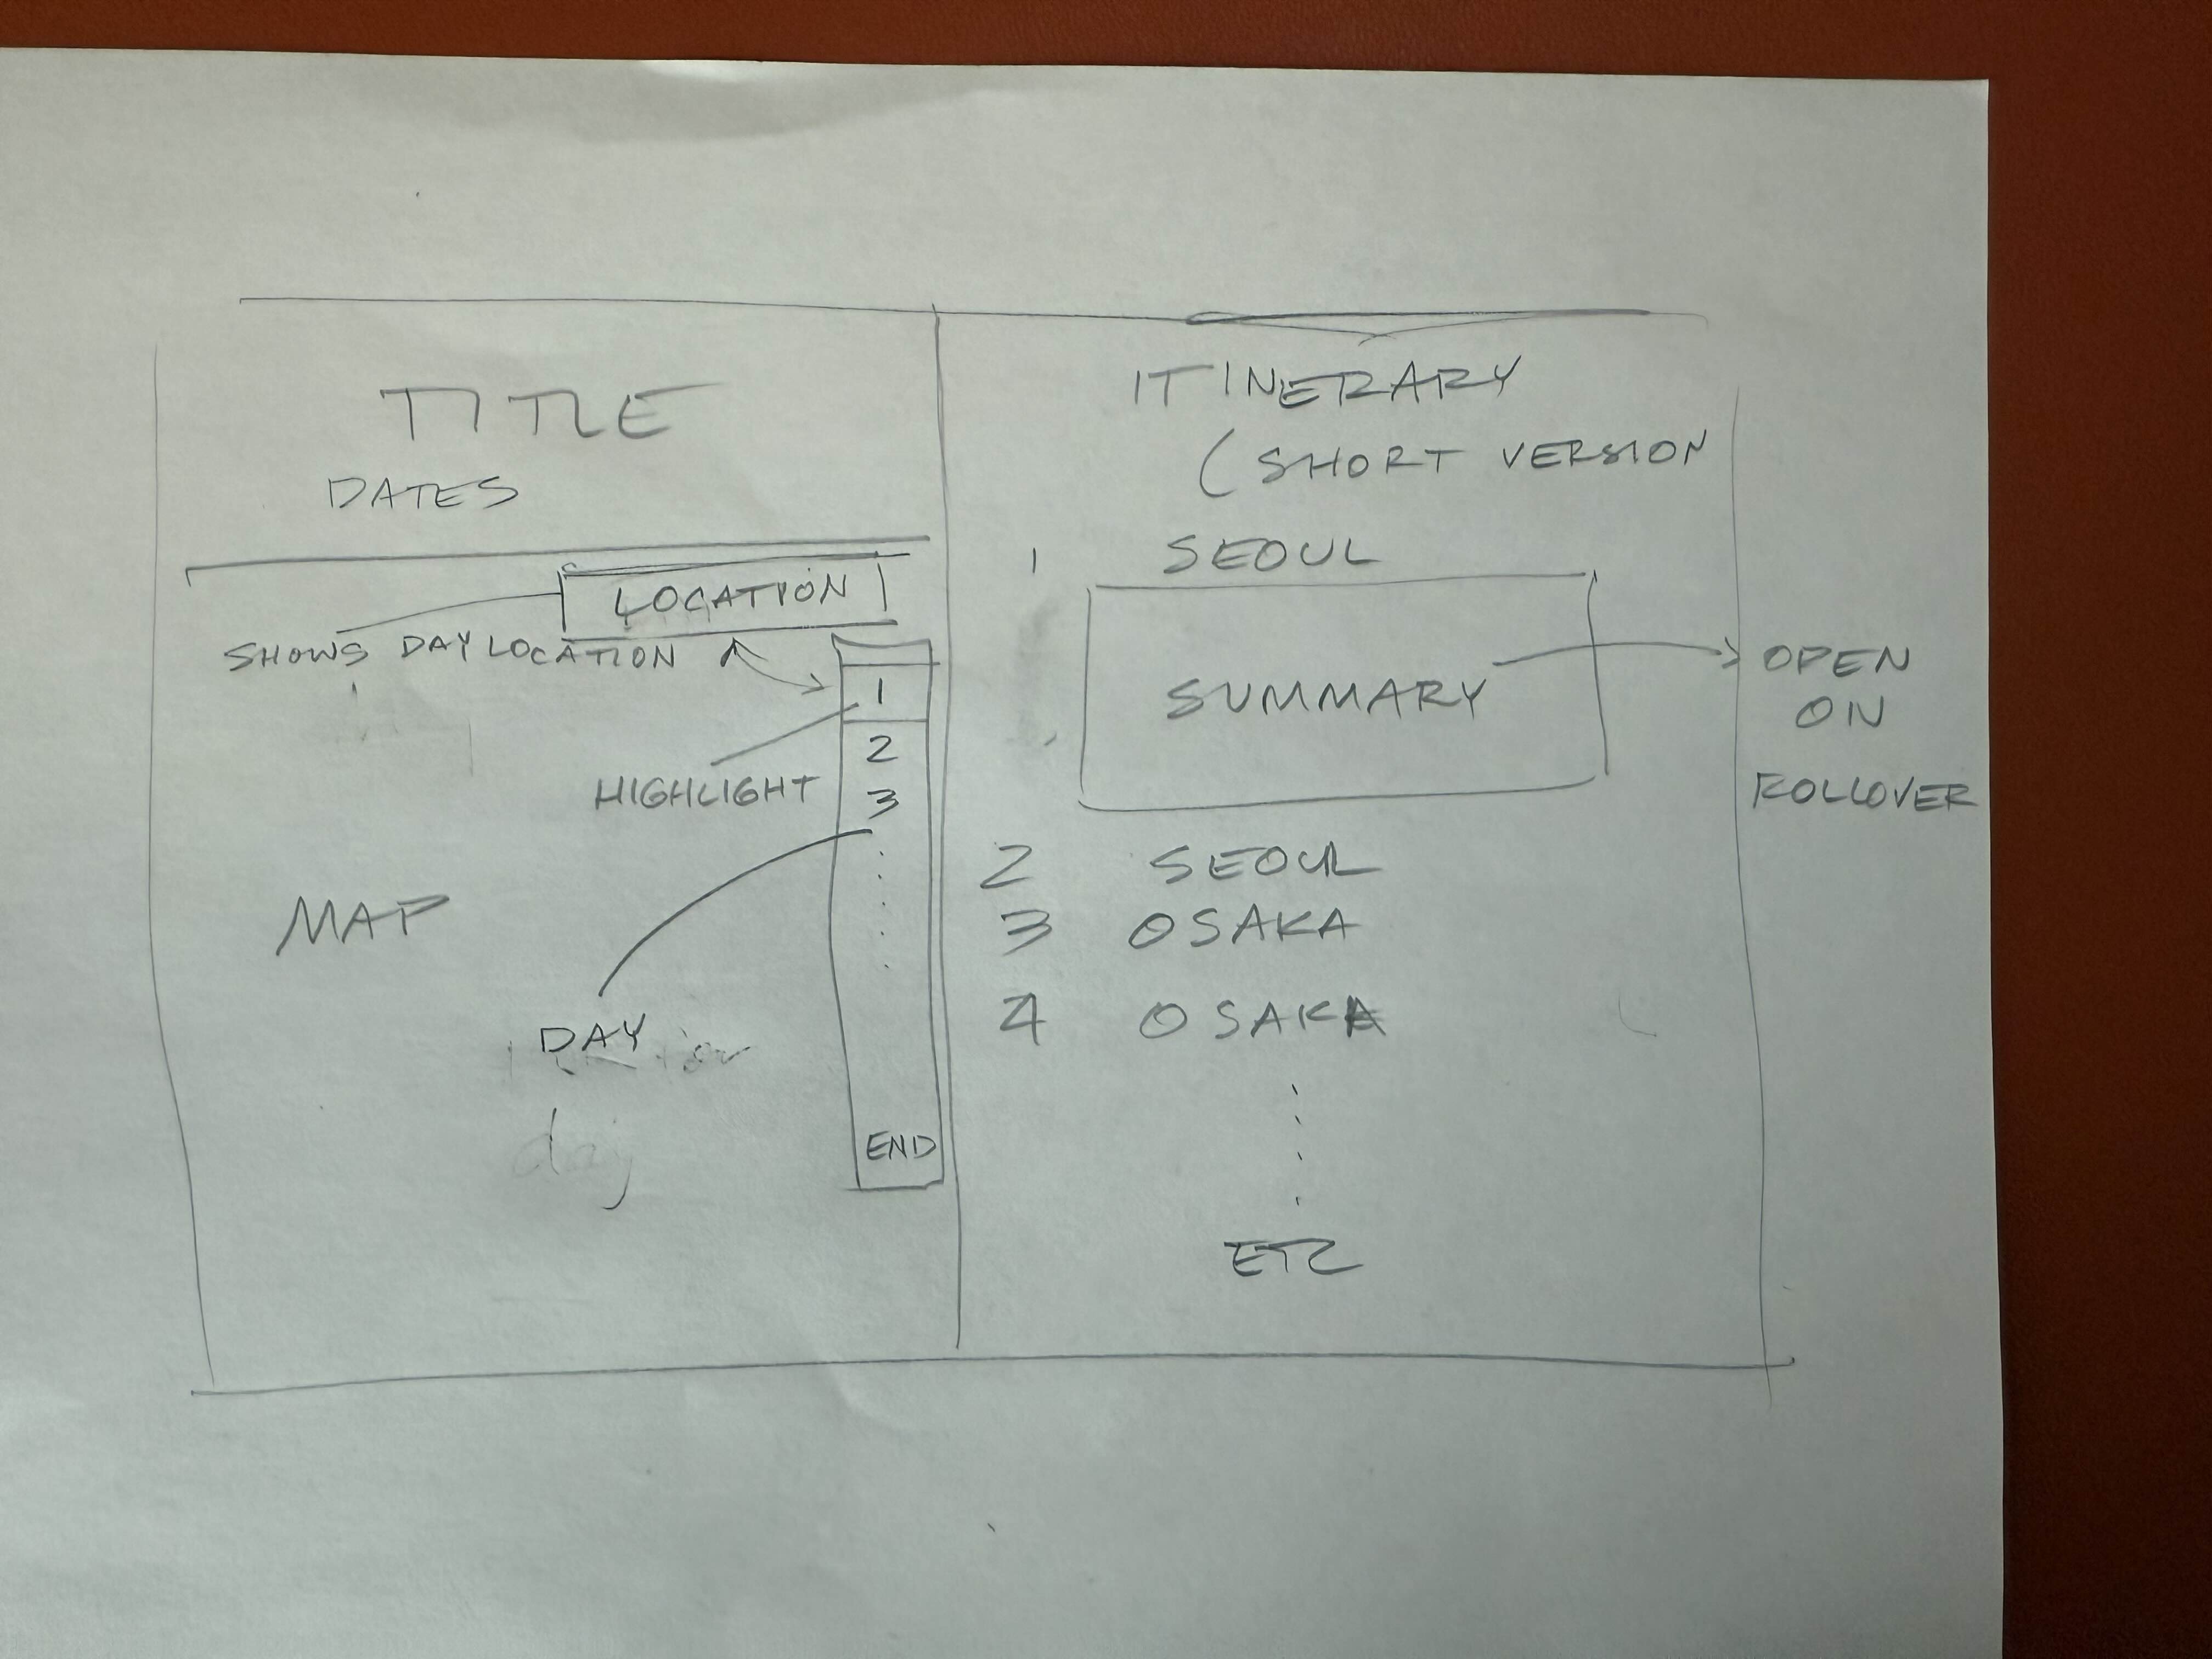 TITLE
DATES
LOCATION
SHOWS DAY LOCATION
1
HIGHLIGHT
2
3
MAP
DAY
day
END
ITINERARY
(SHORT VERSION
1 SEOUL
SUMMARY
OPEN
ON
ROLLOVER
2 SEOUL
3 OSAKA
4 OSAKA
ETC